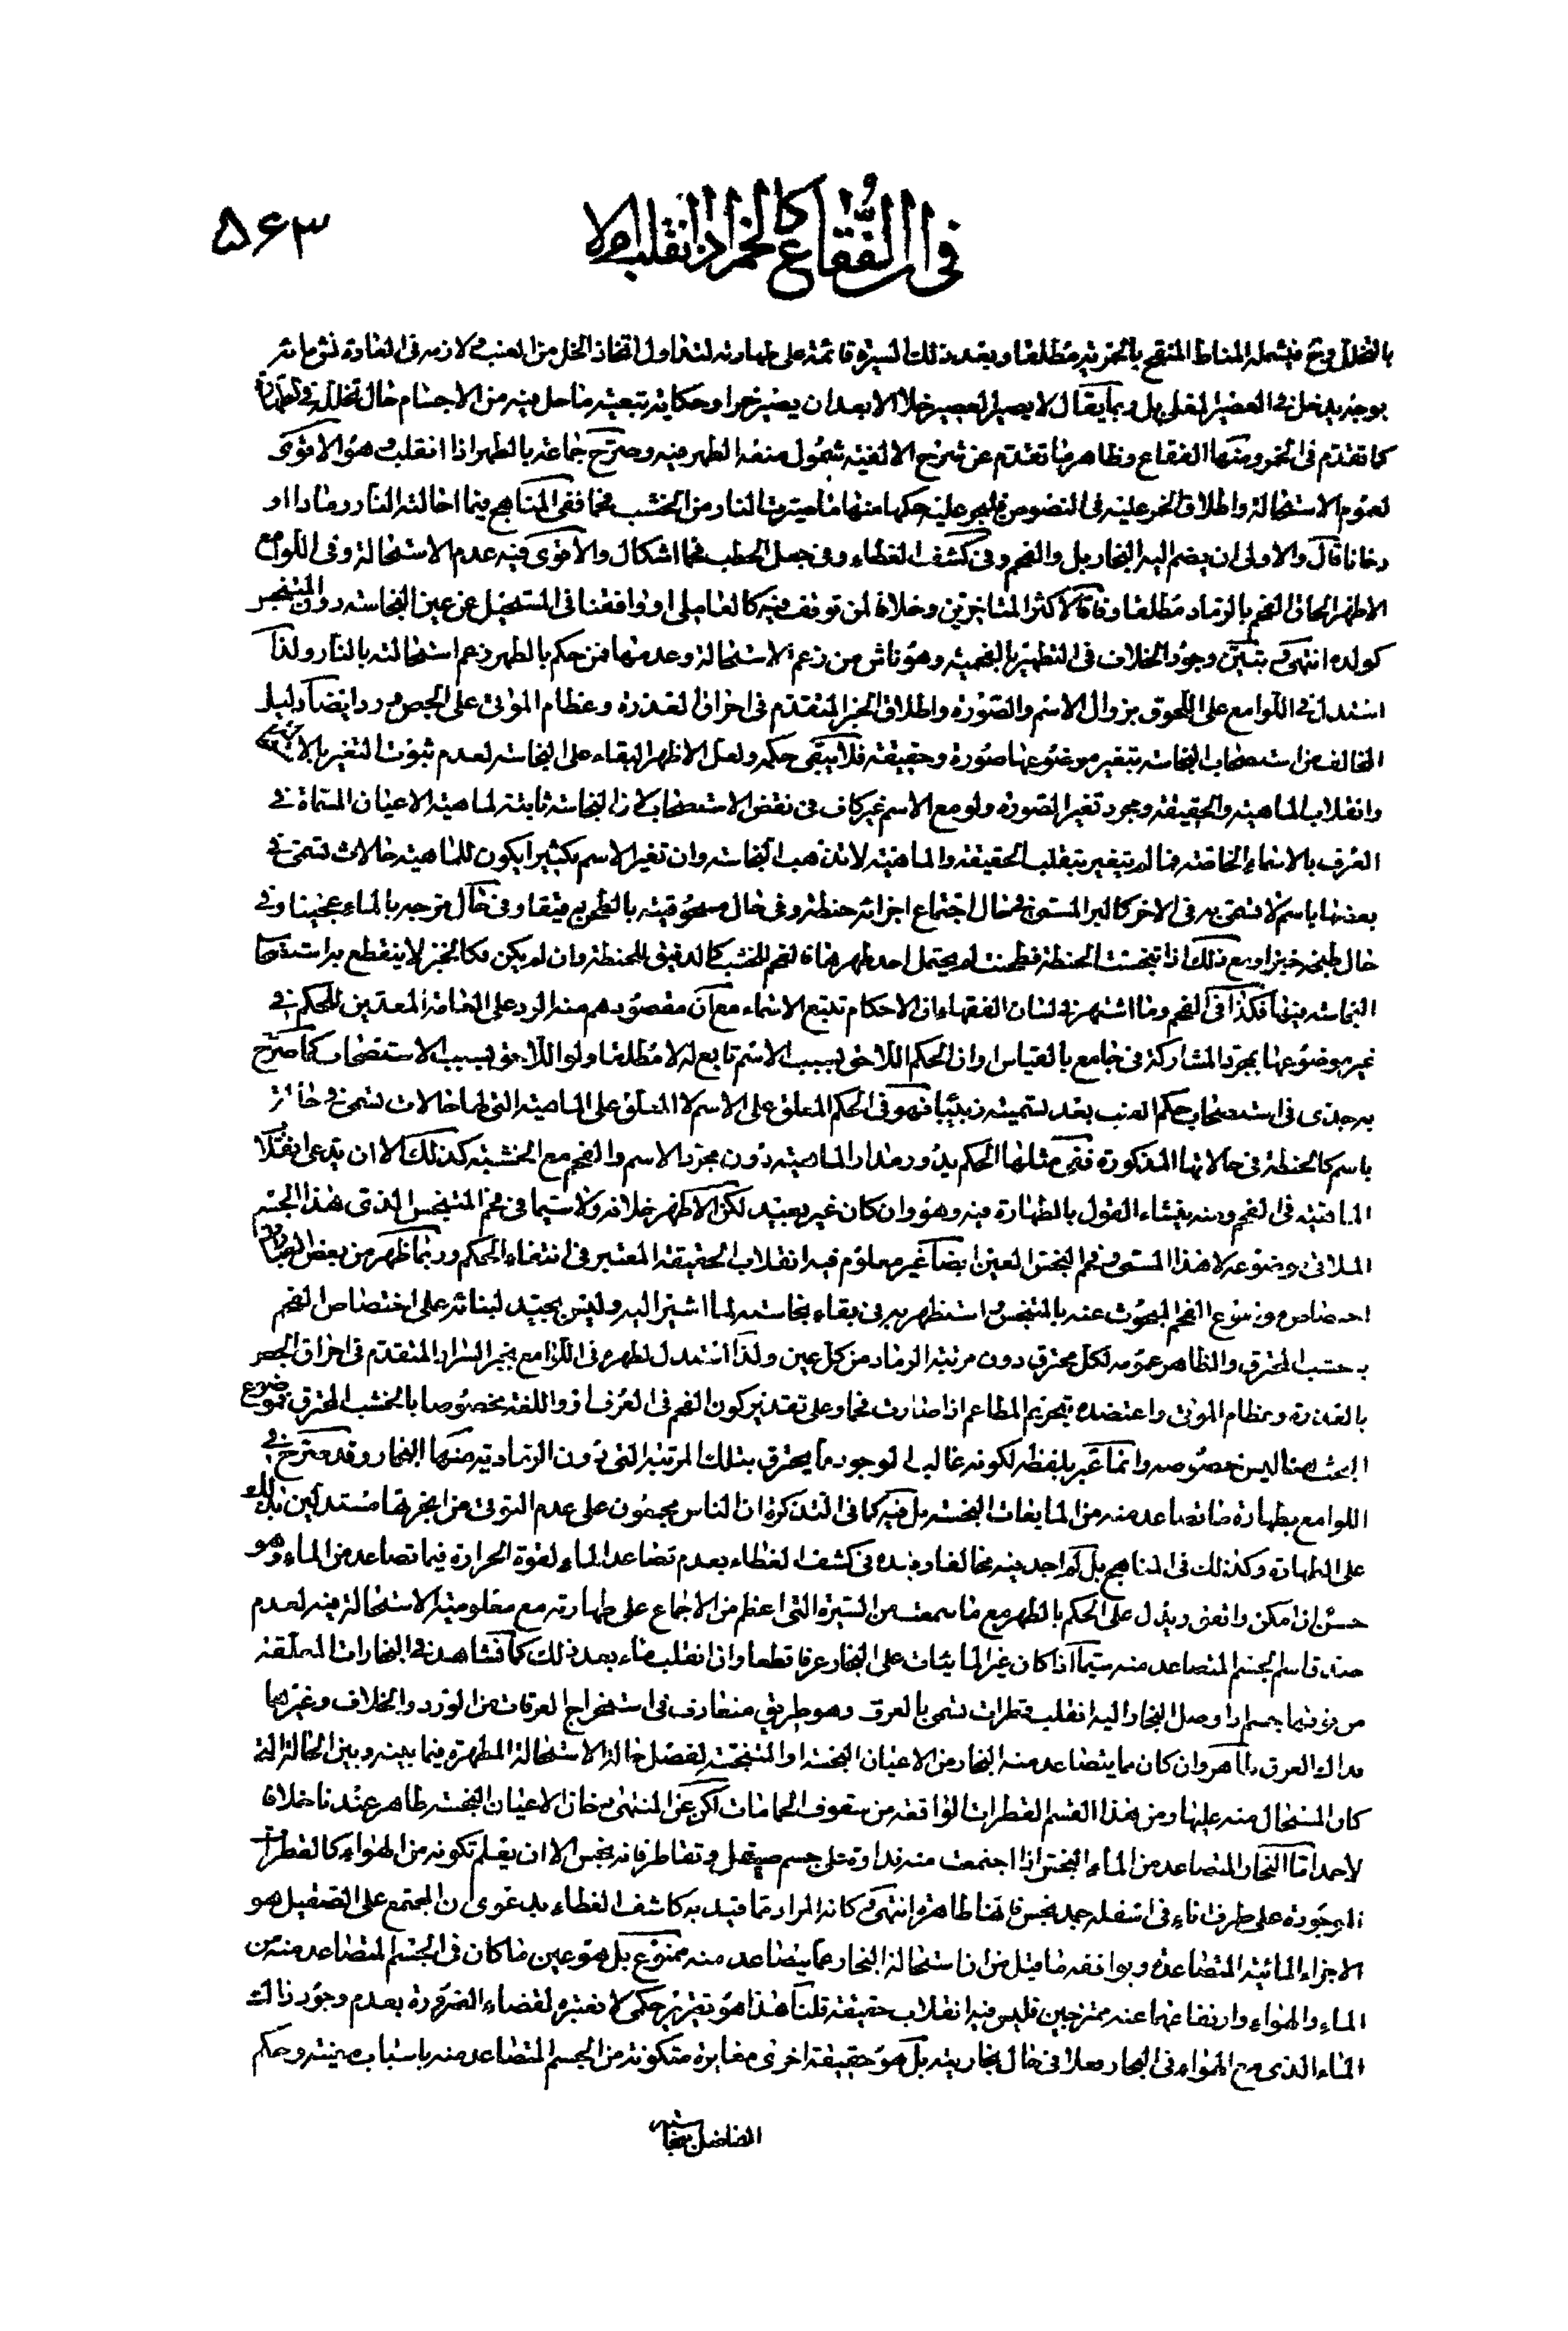 في ان الفقاع كالخمر اذا انقلب ام لا
۵۶۳
بالتخلل وح فيشمله المناط المنقح بالخمرية مطلقا وبعد ذلك السيرة قائمة على طهارته لتداول اتخاذ الخل من العنب ولازمه في العادة
بوجه يدخل في العصير المغلي بل ربما يقال لا يصير العصير خلا الا بعد ان يصير خمرا وحكاية تبعية ما حل فيه من الاجسام حال تخلله في الطهارة
كما تقدم في الخمر ومنها الفقاع وظاهر ما تقدم عن شرح الالفية شمول منعه الطهر فيه وصرح جماعة بالطهر اذا انقلب وهو الاقوى
لعموم الاستحالة واطلاق الخمر عليه في النصوص فيجرى عليه حكمها منها ما صيرته النار من الخشب فحما ففي المناهج فيما احالته النار رمادا او
دخانا قال والاولى ان يضم اليه البخار بل والفحم وفي كشف الغطاء وفي جعل الحطب فحما اشكال والاقوى فيه عدم الاستحالة وفي اللوامع
الاظهر الحاق الفحم بالرماد مطلقا وفاقا لاكثر المتاخرين وخلافا لمن توقف فيه كالفاضل او وافقنا في المستحيل عن عين النجاسة دون المتنجس
كوالده انتهى وبتبين وجود الخلاف في التطهير بالفحمية وهو ناش من زعم الاستحالة وعدمها فمن حكم بالطهر زعم استحالته بالنار ولذا
استدل في اللوامع على اللحوق بزوال الاسم والصورة واطلاق الخبر المتقدم في احراق العذرة وعظام الموتى على الجص ورد ايضا دليل
المخالف من استصحاب النجاسة بتغير موضوعها صورة وحقيقة فلا يبقى حكمه ولعل الاظهر البقاء على النجاسة لعدم ثبوت التغير بالاستحالة
وانقلاب الماهية والحقيقة ومجرد تغير الصورة ولو مع الاسم غير كاف في نقض الاستصحاب لان النجاسة ثابتة لماهية الاعيان المسماة في
العرف بالاسماء الخاصة فما لم يتغير بتقلب الحقيقة والماهية لا تذهب النجاسة وان تغير الاسم فكثيرا يكون للماهية حالات تسمى في
بعضها باسم لا تسمى به في الاخر كالبر المسمى في حال اجتماع اجزائه حنطة وفي حال مسحوقيته بالطحن دقيقا وفي حال مزجه بالماء عجينا وفي
حال طبخه خبزا ومع ذلك اذا تنجست الحنطة فطحنت لم يحتمل احد طهرها فالفحم للخشب كالدقيق للحنطة وان لم يكن فكالخبز لا ينقطع به استصحاب
النجاسة فيها فكذا في الفحم وما اشتهر في لسان الفقهاء ان الاحكام تتبع الاسماء مع ان مقصودهم منه الرد على العامة المعدين للحكم في
غير موضوعها بمجرد المشاركة في جامع بالقياس وان الحكم اللاحق بسبب الاسم تابع له لا مطلقا ولو اللاحق بسبب الاستصحاب كما صرح
به جدى في استصحاب حكم العنب بعد تسميته زبيبا فهو في الحكم المعلق على الاسم لا المعلق على الماهية التي لها حالات تسمى في حالة
باسم كالحنطة في حالاتها المذكورة ففي مثلها الحكم يدور مدار الماهية دون مجرد الاسم والفحم مع الخشبية كذلك الا ان يدعى انقلاب
الماهية في الفحم ومنه ينشاء القول بالطهارة فيه وهو وان كان غير بعيد لكن الاظهر خلافه ولا سيما في فحم المتنجس الذي هذا الجسم
الملاقي موضوعه لا هذا المسمى وفحم النجس العين ايضا غير معلوم فيه انقلاب الحقيقة المعتبر في انتفاء الحكم وربما ظهر من بعض العبارات
اختصاص موضوع الفحم المبحوث عنه بالمتنجس استظهر به في بقاء نجاسته لما اشير اليه وليس بجيد لبنائه على اختصاص الفحم
بخشب المحترق والظاهر عمومه لكل محترق دون مرتبة الرماد من كل عين ولذا استدل لطهره في اللوامع بخبر السراد المتقدم في احراق الجص
بالعذرة وعظام الموتى واعتضده بتحريم المطاعم اذا صارت فحما وعلى تقدير كون الفحم في العرف او اللغة مخصوصا بالخشب المحترق فموضوع
البحث هنا ليس خصوصه وانما عبر بلفظه لكونه غالب الوجود مما يحترق بتلك المرتبة التي دون الرمادية ومنها البخار وقد صرح في
اللوامع بطهارة ما تصاعد منه من المايعات النجسة بل فيه كما في التذكرة ان الناس مجمعون على عدم التوقي من ابخرتها مستدلين بذلك
على الطهارة وكذلك في المناهج بل لم اجد فيه مخالفا وقيده في كشف الغطاء بعدم تصاعد الماء لقوة الحرارة فيما تصاعد من الماء وهو
حسن ان امكن واتفق ويدل على الحكم بالطهر مع ما سمعت من السيرة التي اعظم من الاجماع على طهارته مع معلومية الاستحالة فيه لعدم
صدق اسم الجسم المتصاعد منه سيما اذا كان غير المائيات على البخار عرفا قطعا وان انقلب ماء بعد ذلك كما نشاهد في البخارات المعلقة
من فوقها جسم اذا وصل البخار اليه انقلب قطرات تسمى بالعرق وهو طريق متعارف في استخراج العرقات من الورد والخلاف وغيرهما
فذاك العرق طاهر وان كان مما يتصاعد منه البخار من الاعيان النجسة او المتنجسة لفصل حالة الاستحالة المطهرة فيما بينه وبين الحالة التي
كان المستحال منه عليها ومن هذا القسم القطرات الواقعة من سقوف الحمامات لكن عن المنتهى دخان الاعيان النجسة طاهر عندنا خلافا
لاحمد اما البخار المتصاعد من الماء النجس اذا اجتمعت منه نداوة على جسم صيقل وتقاطر فانه نجس الا ان يعلم تكونه من الهواء كالقطرات
الموجودة على طرف اناء في اسفله جمد نجس فانها طاهرة انتهى وكانه المراد مما قيد به كاشف الغطاء بدعوى ان المجتمع على الصقيل هو
الاجزاء المائية المتصاعدة ويوافقه ما قيل من ان استحالة البخار مما يتصاعد منه ممنوع بل هو عين ما كان في الجسم المتصاعد منه من
الماء والهواء وارتفاعهما عنه ممتزجين فليس فيه انقلاب حقيقة قلنا هذا هو تقرير حكمي لا نعتبره لقضاء الضرورة بعدم وجود ذاك
الماء الذي مع الهواء في البخار فعلا في حال بخاريته بل هو حقيقة اخرى مغايرة متكونة من الجسم المتصاعد منه باسباب معينة وحكم
الفاضل بنجاسته